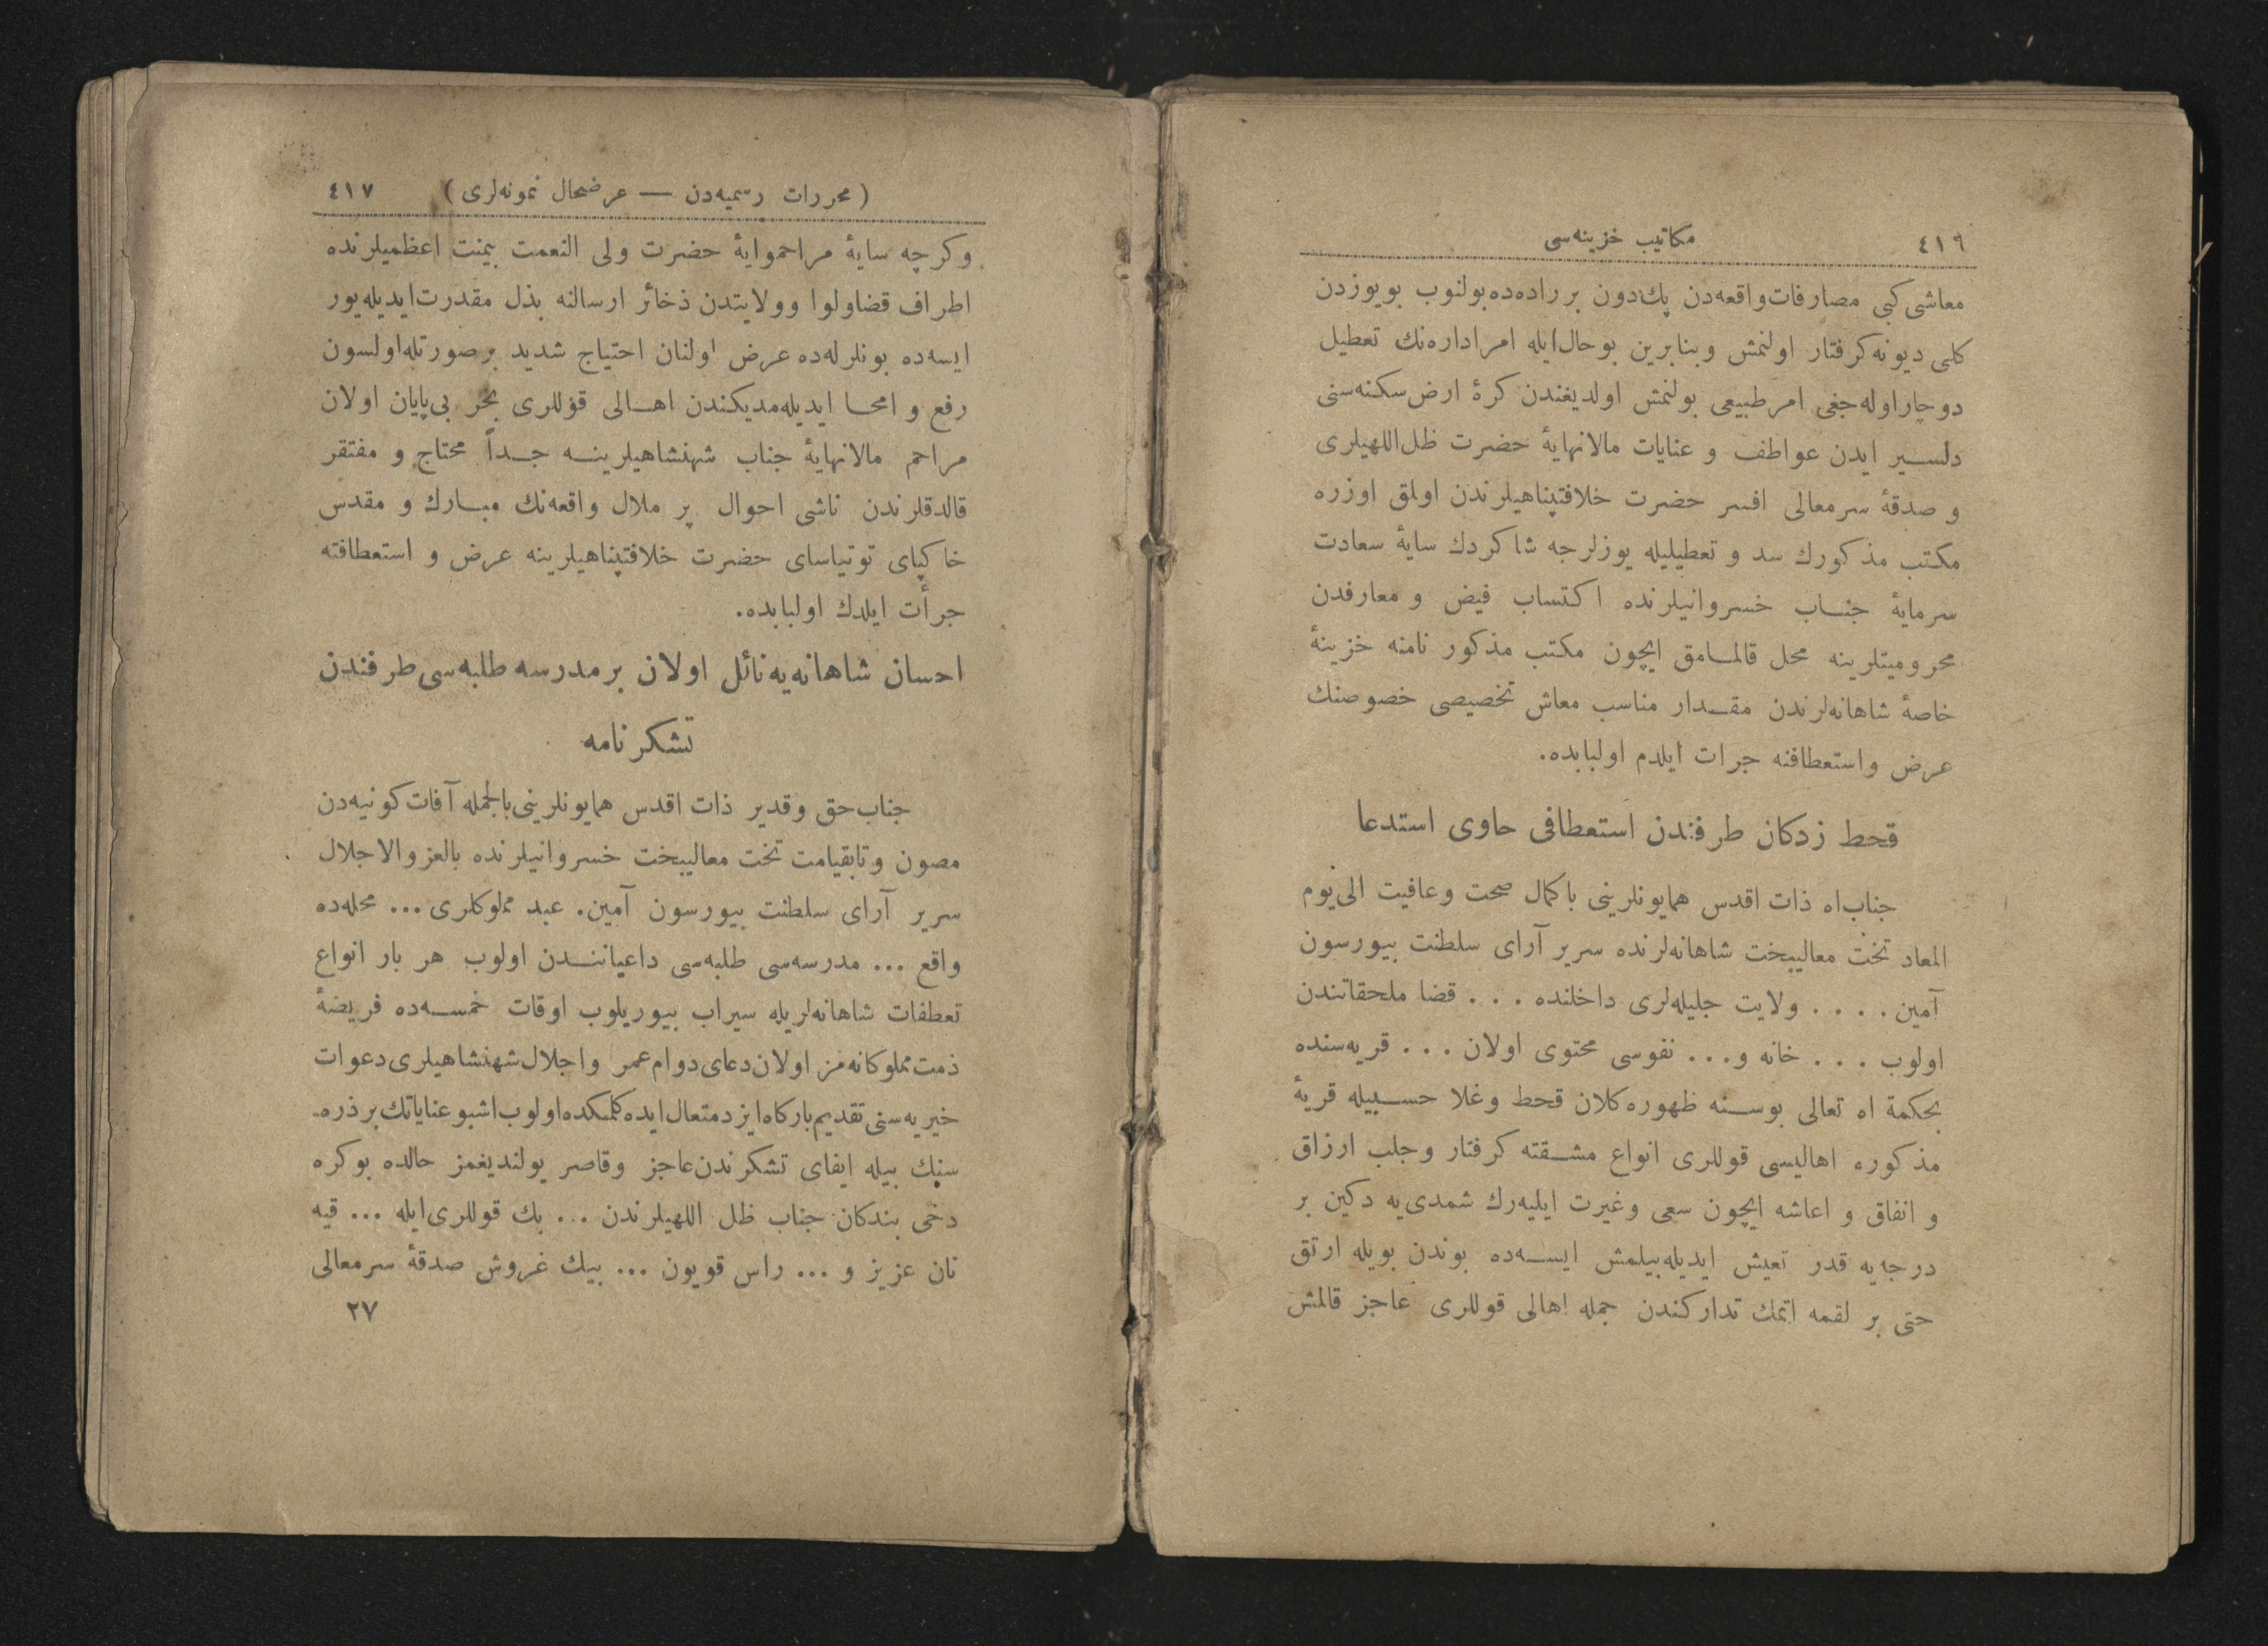 ٤١٦ مكاتيب خزينه‌سی
معاشی كبی مصارفات واقعه‌دن پك دون بر راده‌ده بولنوب بو يوزدن
كلی ديونه كرفتار اولنمش و بنابرين بو حال ايله امر اداره‌نك تعطيل
دوچار اوله‌جغی امر طبيعی بولنمش اولديغندن كرهٔ ارض سكنه‌سنی
دلسير ايدن عواطف و عنايات مالانهايهٔ حضرت ظل اللهيلری
و صدقهٔ سر معالی افسر حضرت خلافتپناهيلرندن اولمق اوزره
مكتب مذكورك سد و تعطيليله يوزلرجه شاكردك سايهٔ سعادت
سرمايهٔ جناب خسروانيلرنده اكتساب فيض و معارفدن
محروميتلرينه محل قالمامق ايچون مكتب مذكور نامنه خزينهٔ
خاصهٔ شاهانه‌لرندن مقدار مناسب معاش تخصيصی خصوصنك
عرض و استعطافنه جرات ايلدم اولبابده.
قحط زدكان طرفندن استعطافی حاوی استدعا
جناب اه ذات اقدس همايونلرينی با كمال صحت و عافيت الی يوم
المعاد تخت معاليبخت شاهانه‌لرنده سرير آرای سلطنت بيورسون
آمين . . . . ولايت جليله‌لری داخلنده . . . قضا ملحقاتندن
اولوب . . . خانه و . . . نفوسی محتوی اولان . . . قريه‌سنده
بحكمة اه تعالی بو سنه ظهوره كلان قحط و غلا حسبيله قريهٔ
مذكوره اهاليسی قوللری انواع مشقته كرفتار و جلب ارزاق
و انفاق و اعاشه ايچون سعی و غيرت ايليه‌رك شمدی‌يه دكين بر
درجه‌يه قدر تعيش ايديله‌بيلمش ايسه‌ده بوندن بويله ارتق
حتی بر لقمه اتمك تداركندن جمله اهالی قوللری عاجز قالمش
( محررات رسميه‌دن — عرضحال نمونه‌لری ) ٤١٧
و كرچه سايهٔ مراحموايهٔ حضرت ولی النعمت بيمنت اعظميلرنده
اطراف قضا و لوا و ولايتدن ذخائر ارسالنه بذل مقدرت ايديله‌يور
ايسه‌ده بونلرله‌ده عرض اولنان احتياج شديد بر صورتله اولسون
رفع و امحا ايديله‌مديكندن اهالی قوللری بحر بی‌پايان اولان
مراحم مالانهايهٔ جناب شهنشاهيلرينه جداً محتاج و مفتقر
قالدقلرندن ناشی احوال پر ملال واقعه‌نك مبارك و مقدس
خاكپای توتياسای حضرت خلافتپناهيلرينه عرض و استعطافنه
جرأت ايلدك اولبابده.
احسان شاهانه‌يه نائل اولان بر مدرسه طلبه‌سی طرفندن
تشكرنامه
جناب حق و قدير ذات اقدس همايونلرينی بالجمله آفات كونيه‌دن
مصون و تا بقيامت تخت معاليبخت خسروانيلرنده بالعز والاجلال
سرير آرای سلطنت بيورسون آمين. عبد مملوكلری ... محله‌ده
واقع ... مدرسه‌سی طلبه‌سی داعياننـدن اولوب هر بار انواع
تعطفات شاهانه‌لريله سيراب بيوريلوب اوقات خمسه‌ده فريضهٔ
ذمت مملوكانه‌مز اولان دعای دوام عمر و اجلال شهنشاهيلری دعوات
خيريه‌سنی تقديم باركاه ايزد متعال ايده كلمكده اولوب اشبو عناياتك بر ذره.
سنك بيله ايفای تشكرندن عاجز و قاصر بولنديغمز حالده بو كره
دخی بندكان جناب ظل اللهيلرندن ... بك قوللری ايله ... قيه
نان عزيز و ... راس قويون ... بيك غروش صدقهٔ سر معالی
٢٧